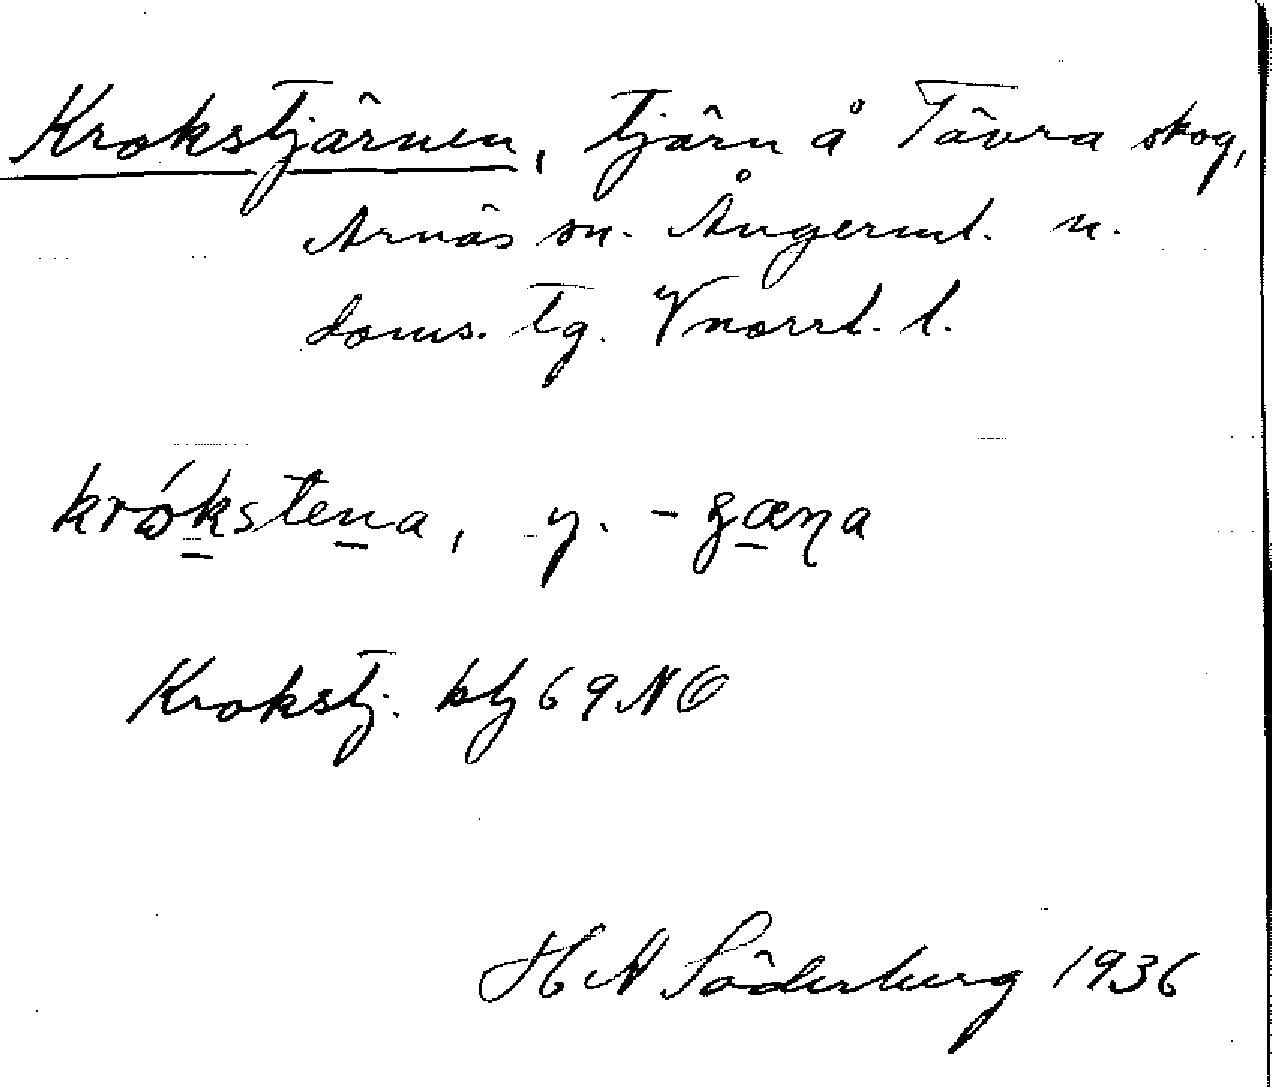 Krokstjärnen, tjärn å Tävra skog,
Arnäs sn. Ångerml. n.
doms. tg. Vnorrl. l.
krókstena, y. -gæŋa
Krokstj. blz 69 NÖ
H N Söderberg 1936